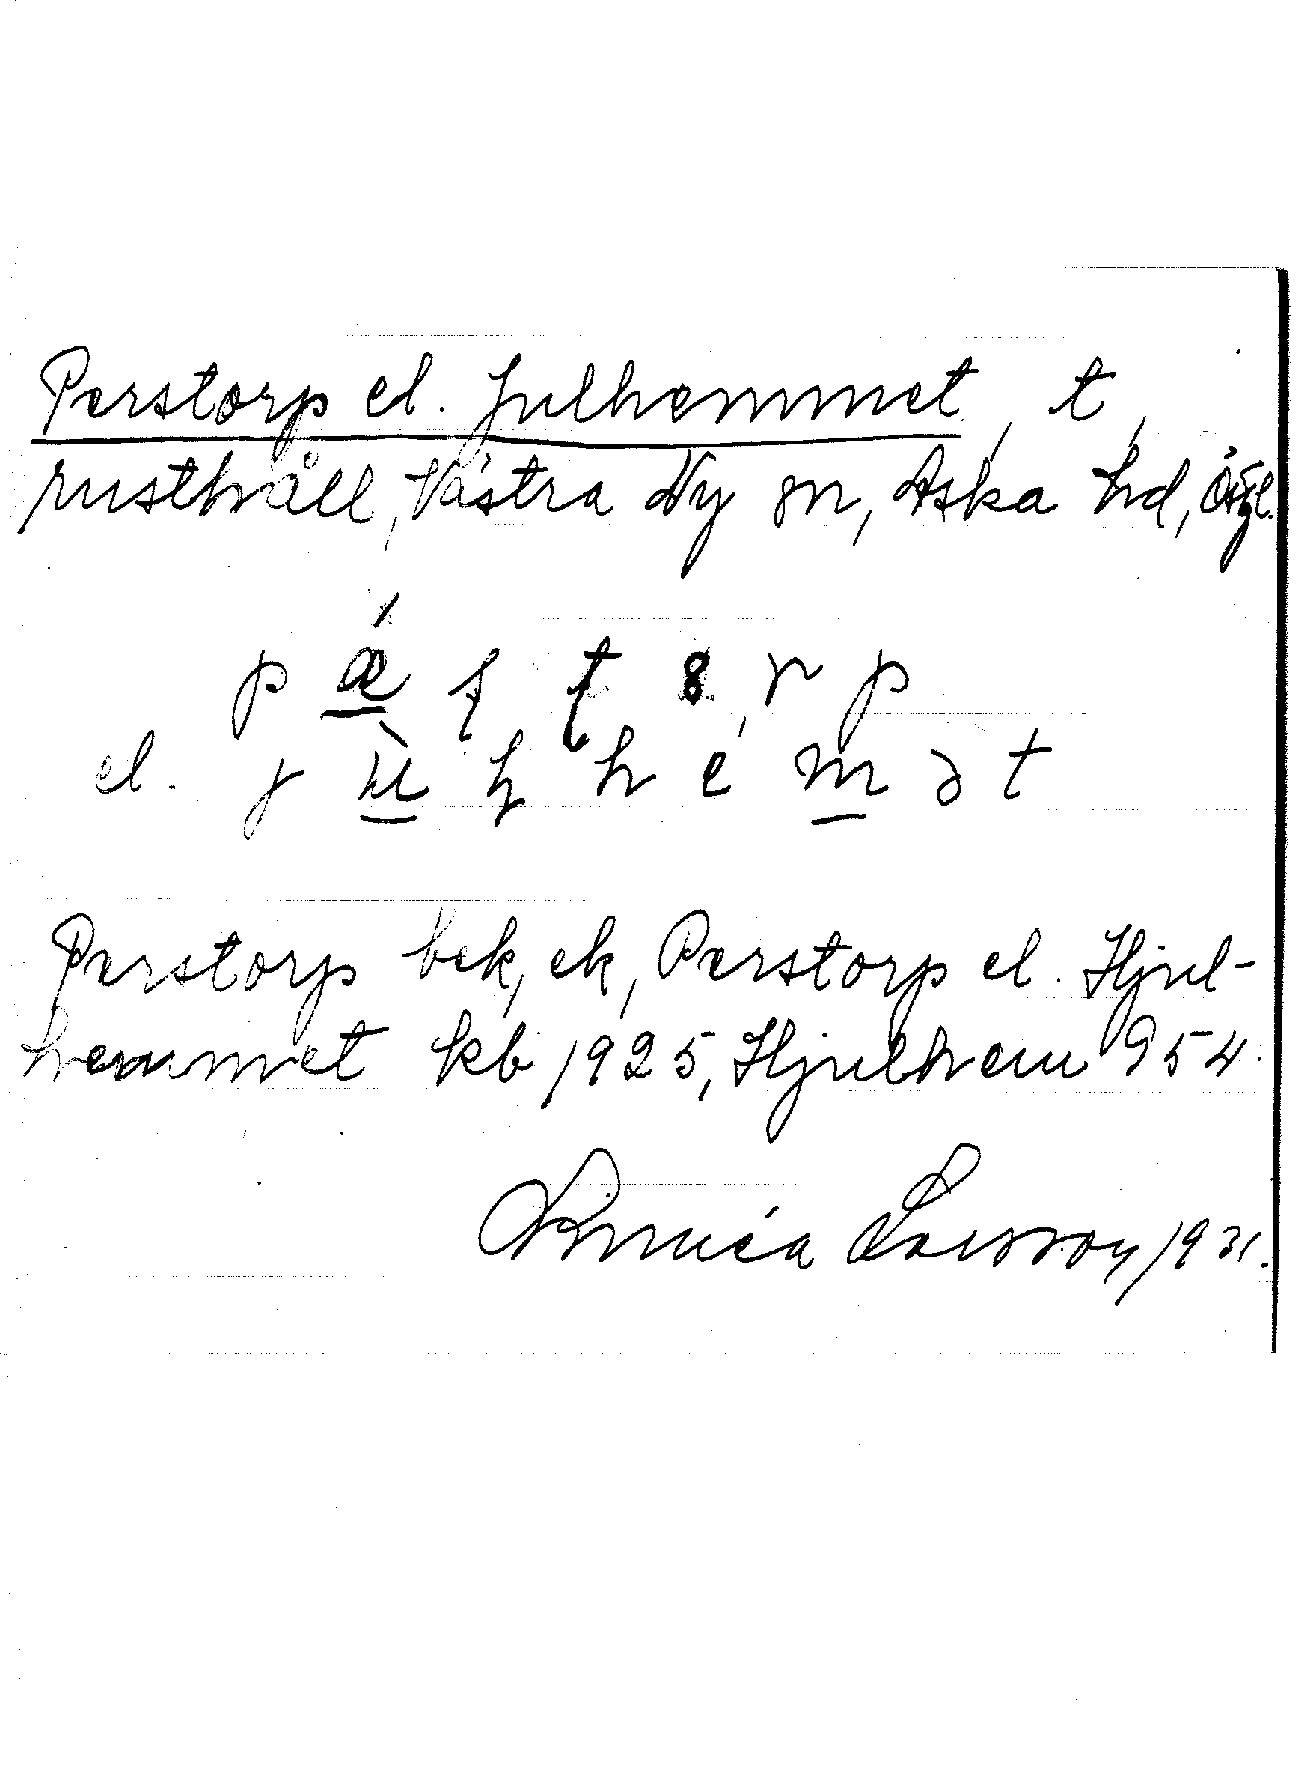 Perstorp el. Julhemmet, t,
rusthåll, Västra Ny sn, Aska hd, Ögl.
el.
Perstorp bek, ek, Perstorp el. Hjul-
hemmet kb 1925, Hjulhem 954.
Larsson 1931.